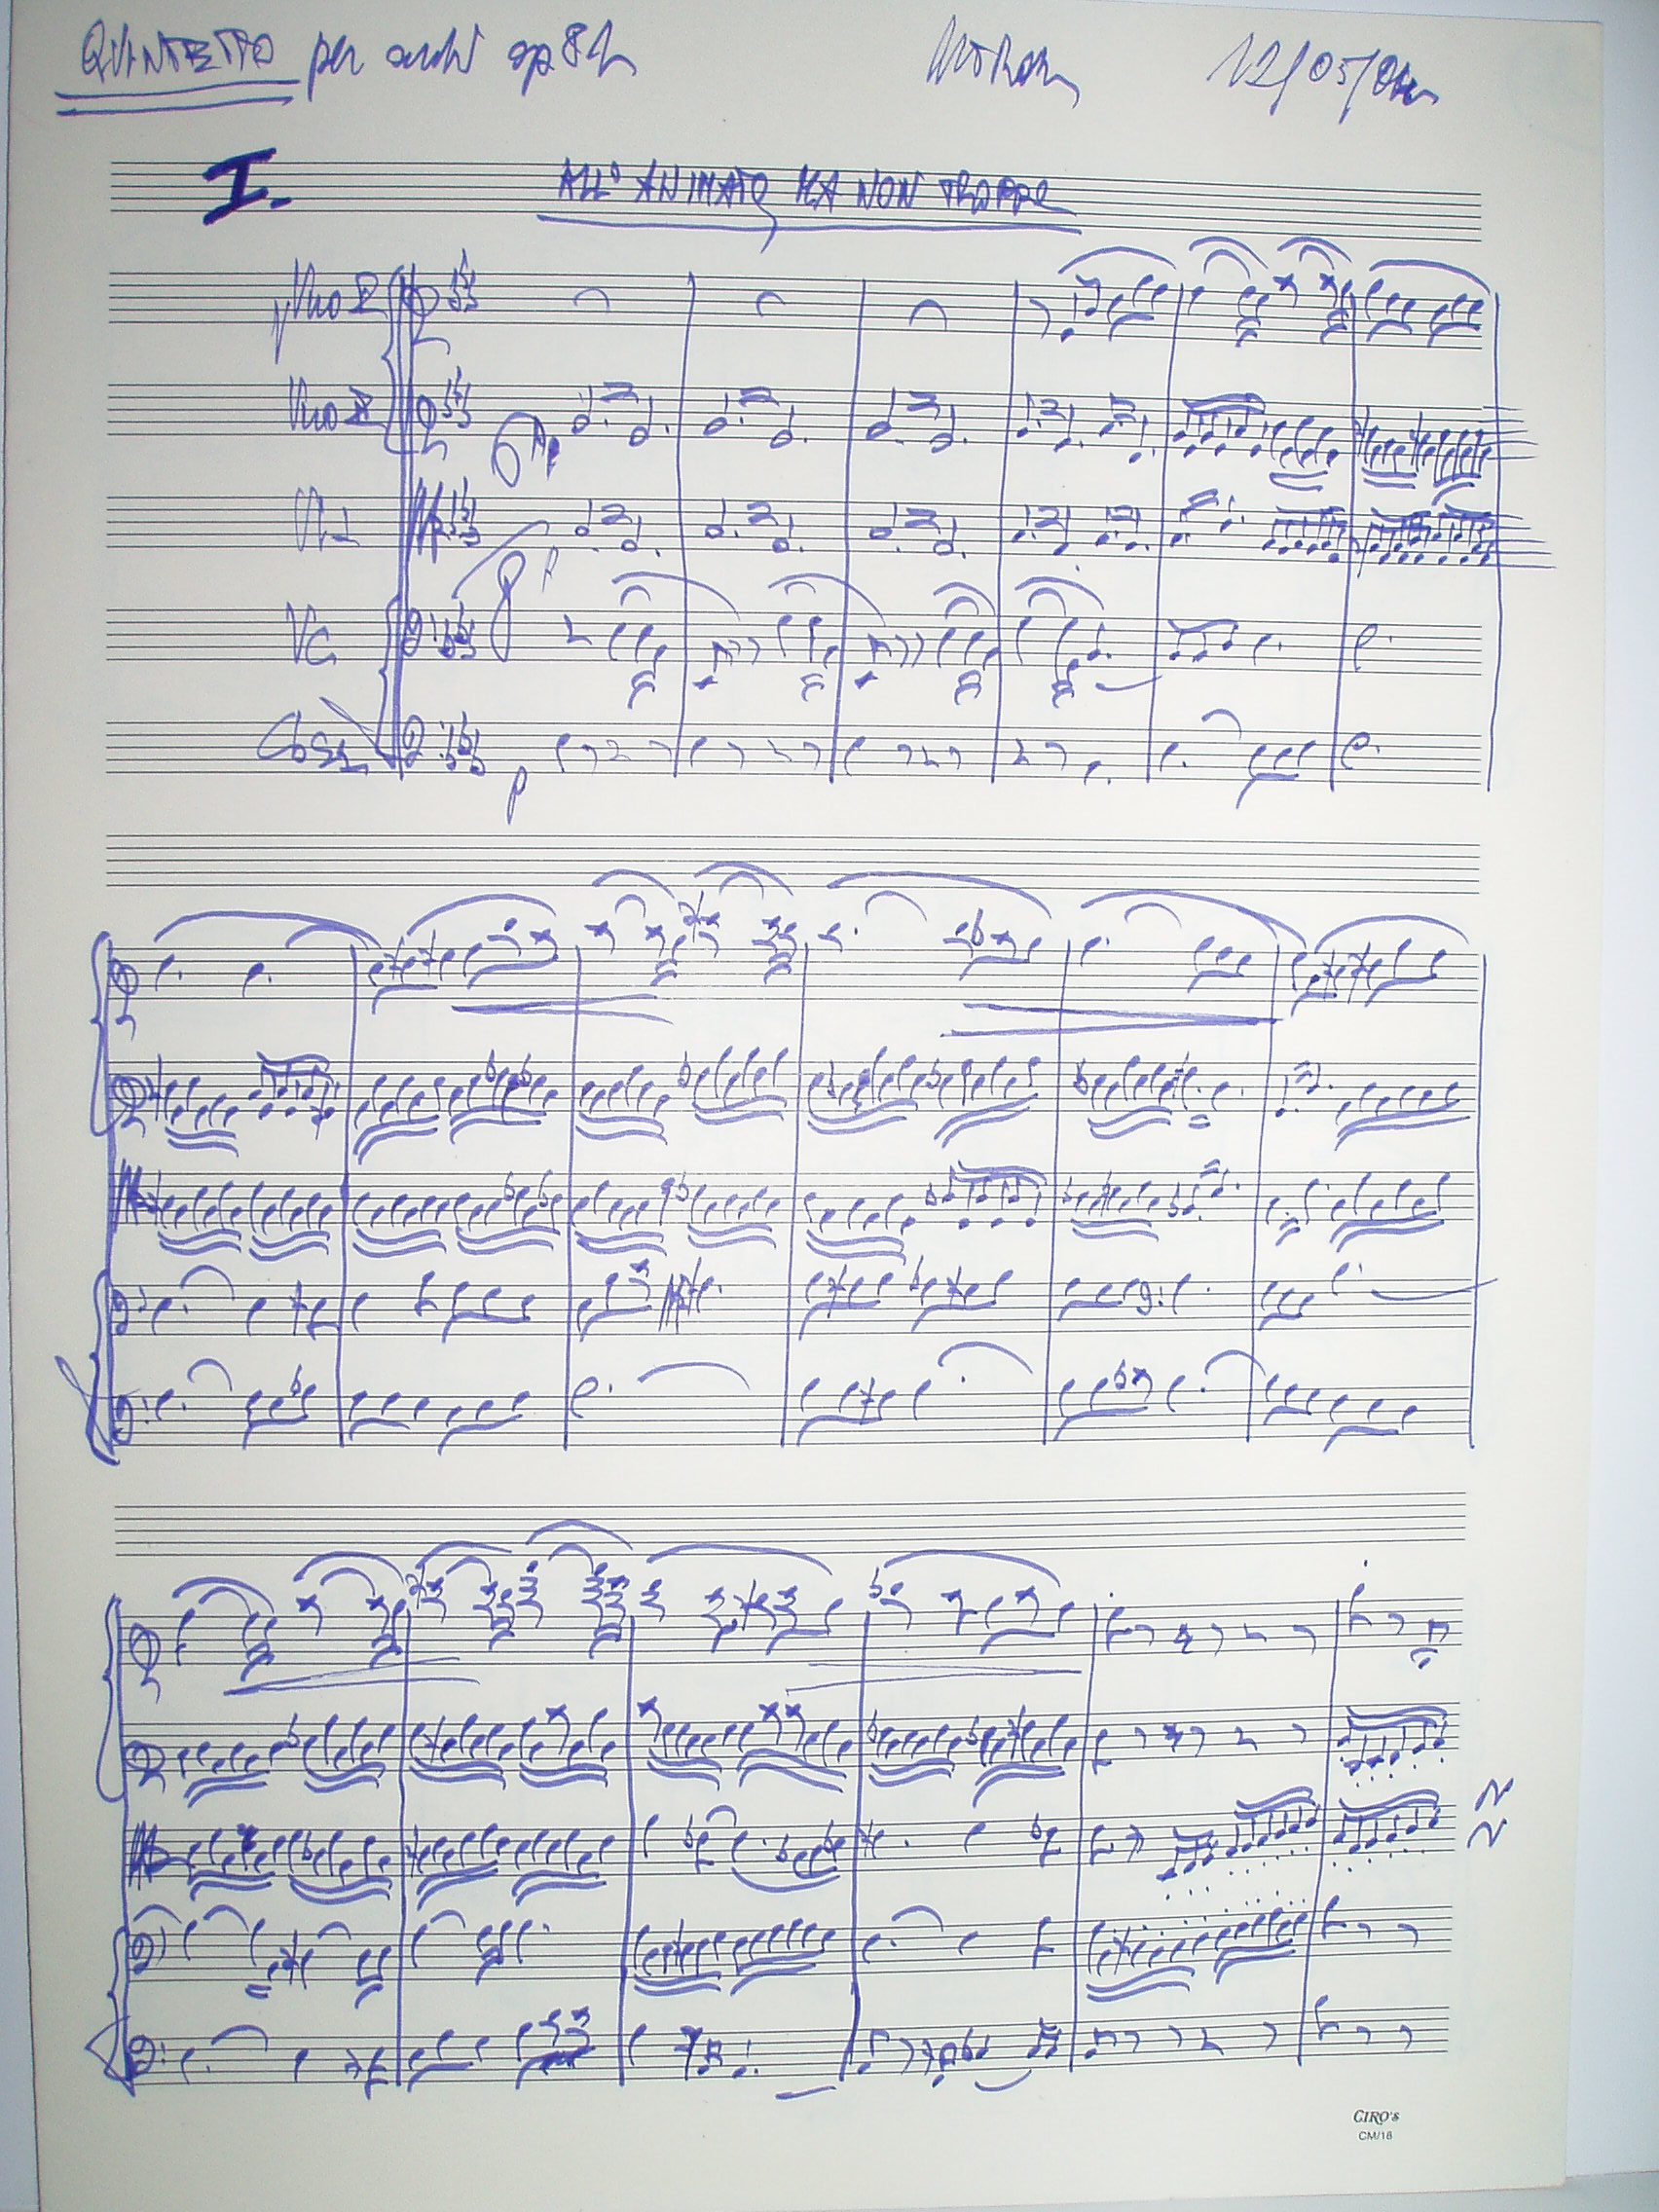 QUINTETTO per archi op 82
I.
ALLº ANIMATO, MA NON TROPPO
Vno I
Vno II
P
Vla
P
Vc
Cbss
P
CIRO's
CM/18